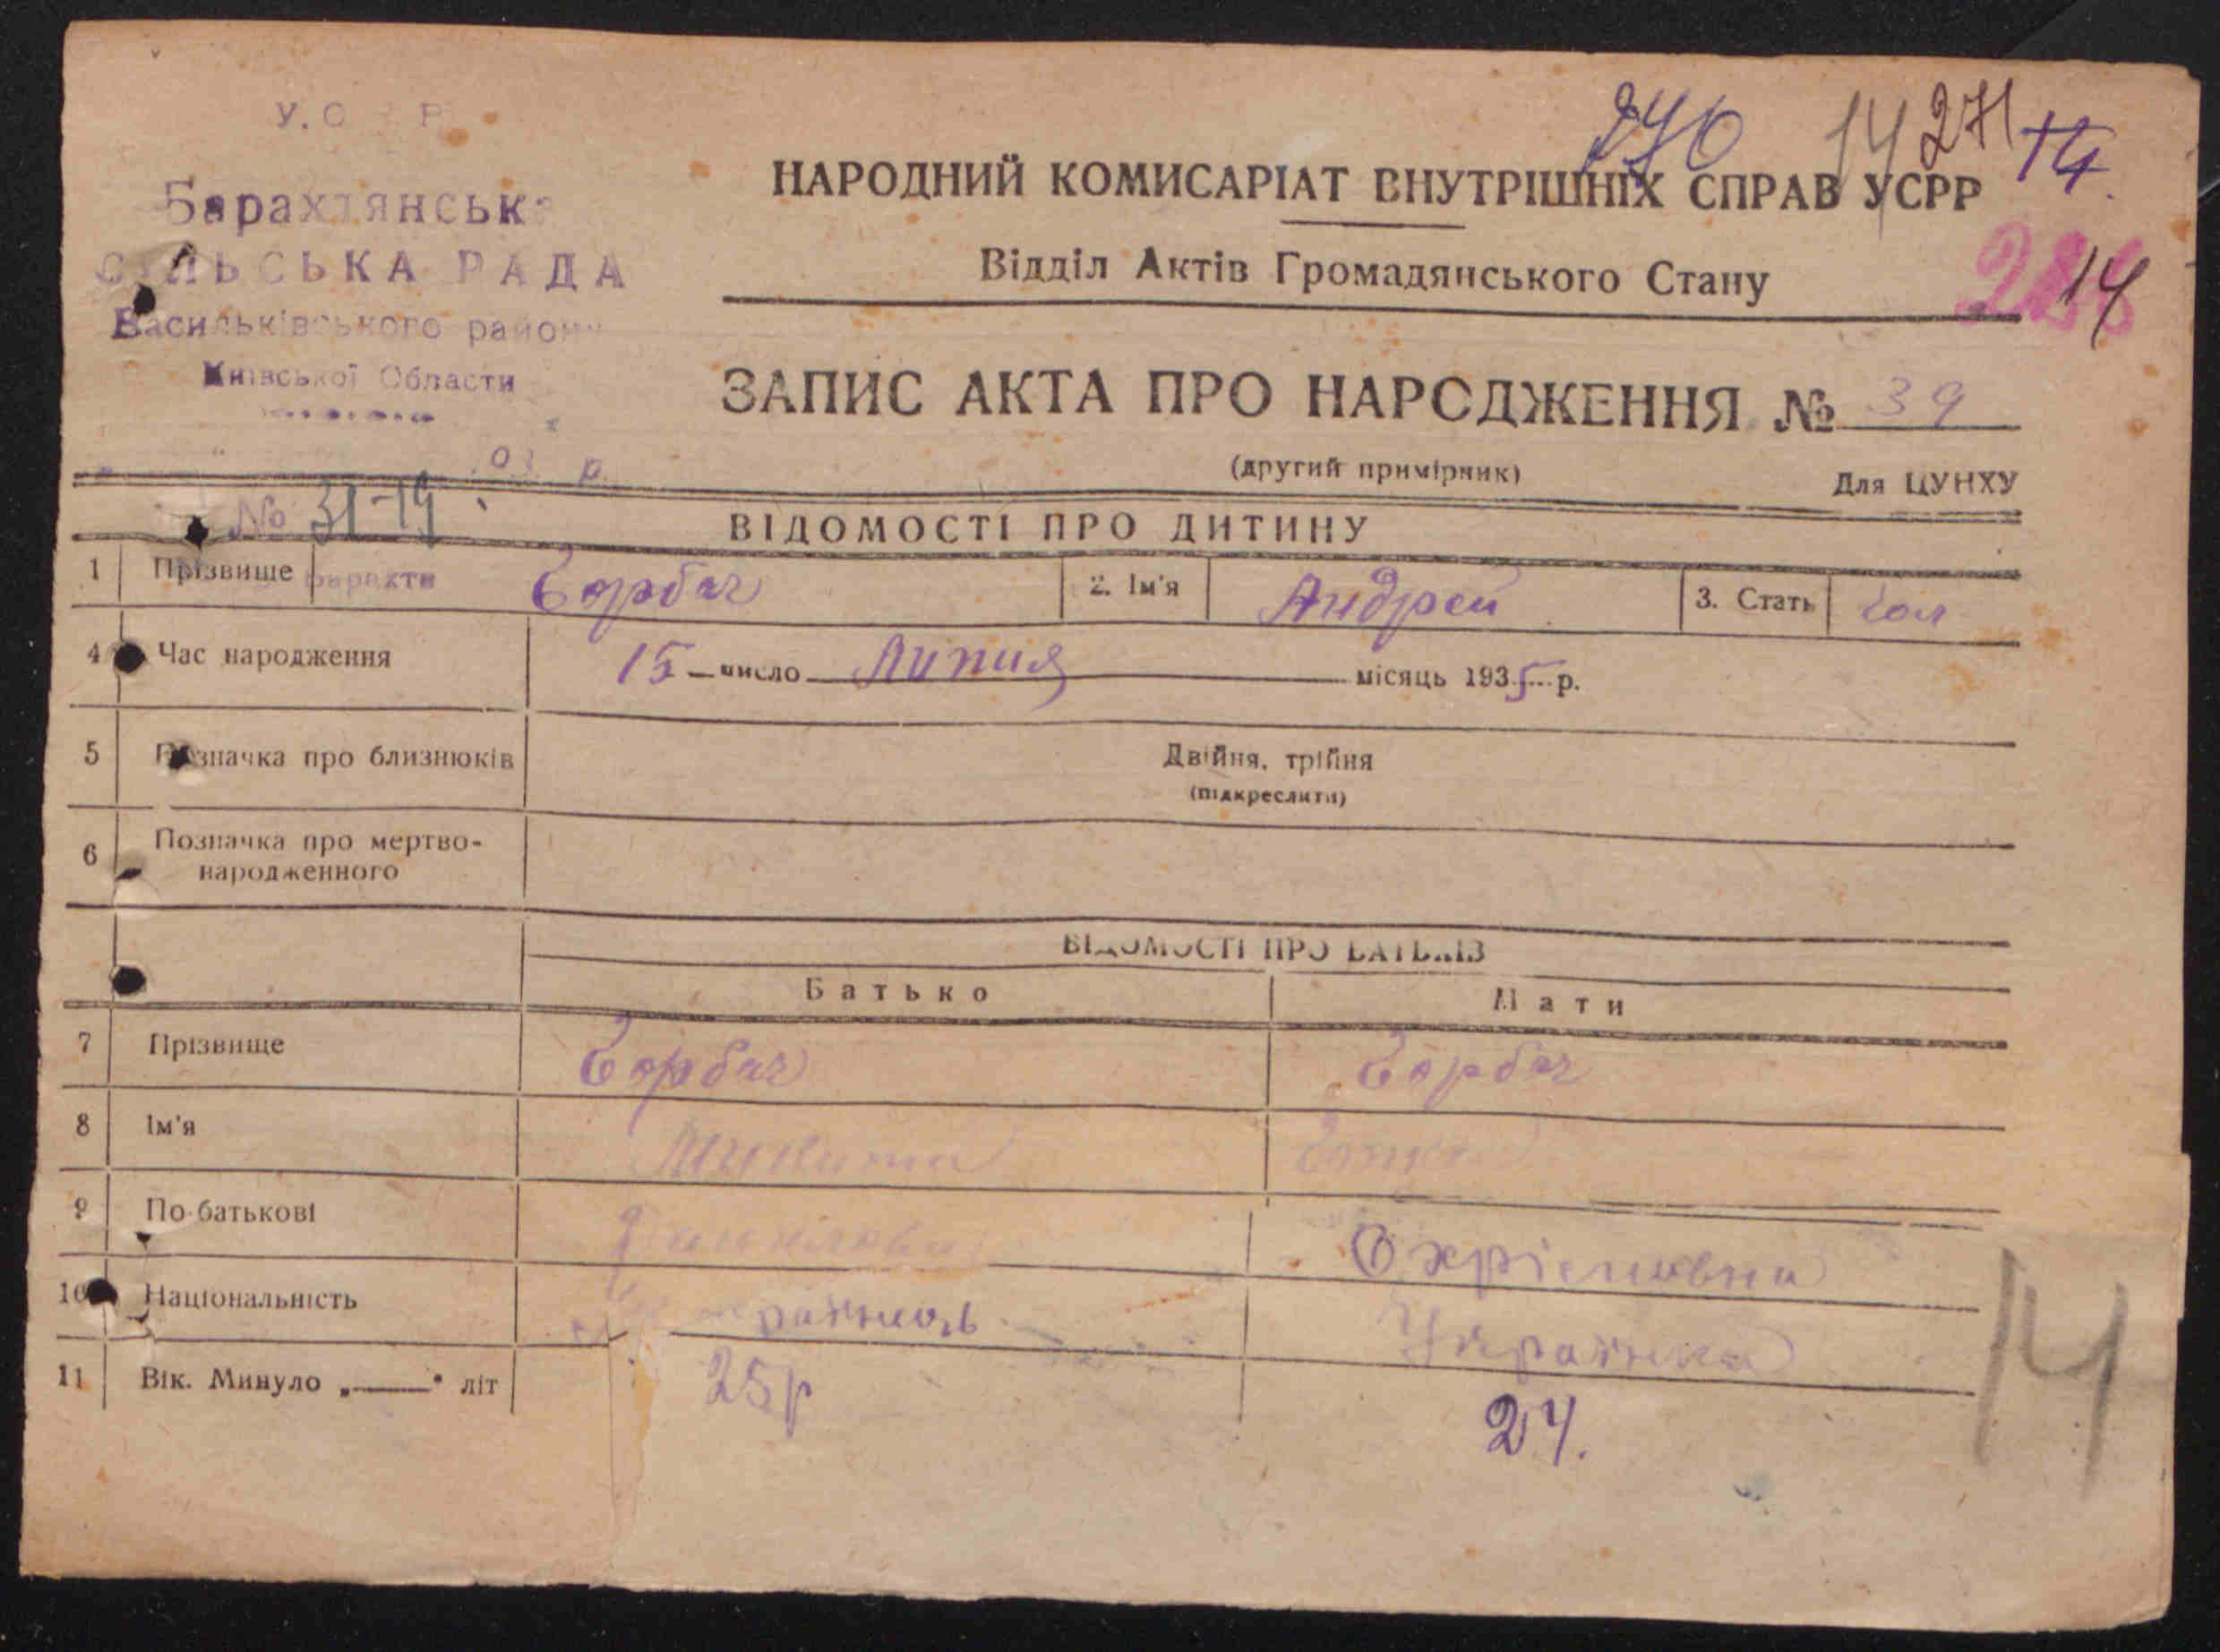 У.С Р
270 14 271 14
Барахтянська
СІЛЬСЬКА РАДА
Васильківського району
Київської Области
НАРОДНИЙ КОМИСАРІАТ ВНУТРІШНІХ СПРАВ УСРР
Відділ Актів Громадянського Стану
14
ЗАПИС АКТА ПРО НАРОДЖЕННЯ № 39
(другий примірник) Для ЦУНХУ
№ 31-19
ВІДОМОСТІ ПРО ДИТИНУ
1 Прізвище Барахти Борбач 2. Ім'я Андрей 3. Стать Чол
4 Час народження 15 число Липня місяць 1935 р.
5 Позначка про близнюків Двійня, трійня
(підкреслити)
6 Позначка про мертво-
народженного
ВІДОМОСТІ ПРО БАТЬКІВ
Батько Мати
7 Прізвище Борбач Борбач
8 Ім'я Микита
9 По-батькові Охрімовна
10 Національність Українка
11 Вік. Минуло „——" літ 25р 24.
14